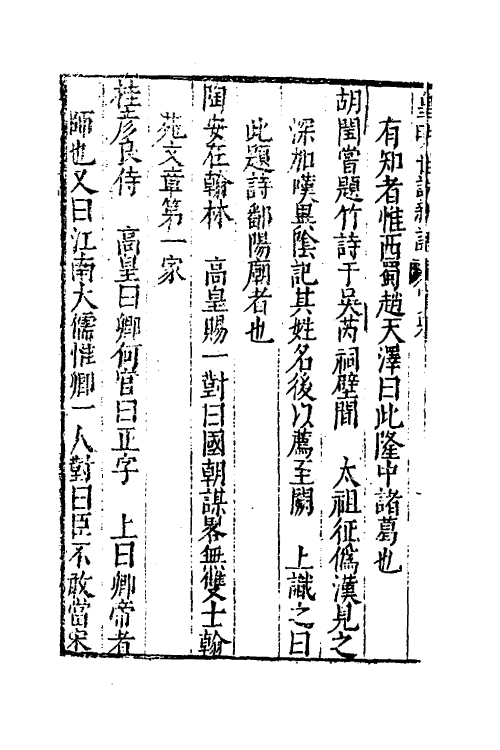 皇明世說新語
有知者惟西蜀趙天澤曰此隆中諸葛也
胡閏嘗題竹詩于吳芮祠壁間　太祖征偽漢見之
深加嘆異陰記其姓名後以薦至闕　上識之曰
此題詩鄱陽廟者也
陶安在翰林　高皇賜一對曰國朝謀畧無雙士翰
苑文章第一家
桂彥良侍　高皇曰卿何官曰正字　上曰卿帝者
師也又曰江南大儒惟卿一人對曰臣不敢當宋